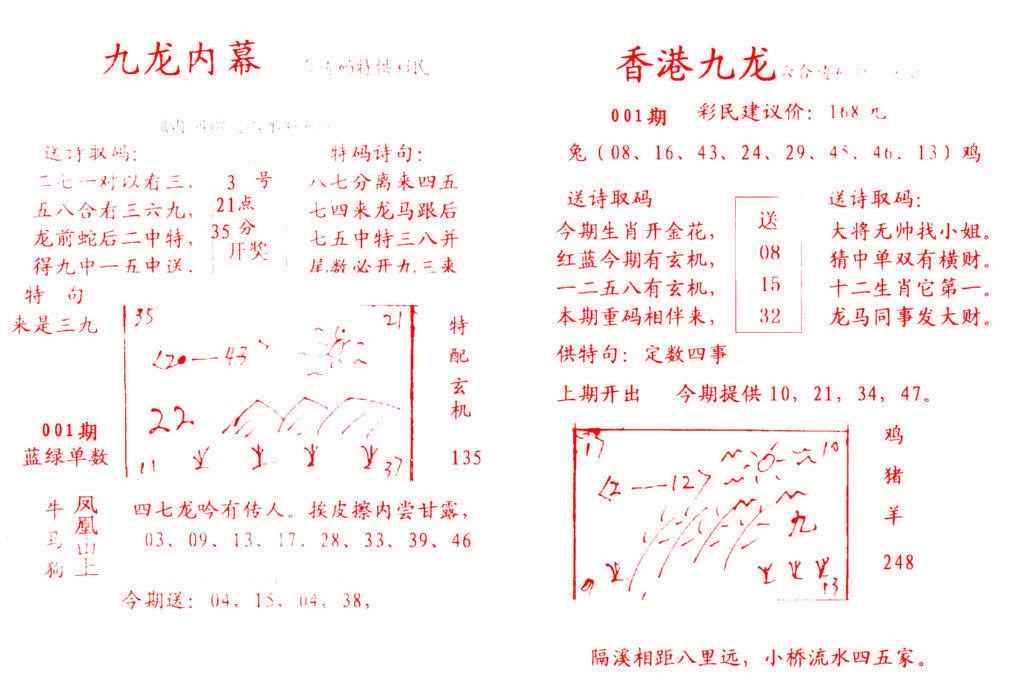 九龙内幕
送诗取码：
二七一对以有三，
五八合有三六九，
龙前蛇后二中特，
得九中一五中送，
3 号
21点
35 分
开奖
特码诗句：
八七分离来四五
七四来龙马跟后
七五中特三八并
尾数必开九三来
特 句
来是三九
001期
蓝绿单数
35
21
<20—43>
22
11
37
特
配
玄
机
135
牛
马
狗
凤
凰
山
上
四七龙吟有传人。挨皮擦内尝甘露，
03、09、13、17、28、33、39、46
今期送：04、15、04、38，
香港九龙
001期 彩民建议价：168元
兔（08、16、43、24、29、45、46、13）鸡
送诗取码
今期生肖开金花，
红蓝今期有玄机，
一二五八有玄机，
本期重码相伴来，
送
08
15
32
送诗取码：
大将无帅找小姐。
猜中单双有横财。
十二生肖它第一。
龙马同事发大财。
供特句：定数四事
上期开出 今期提供10，21，34，47。
17
10
<2—12>
九
9
13
鸡
猪
羊
248
隔溪相距八里远，小桥流水四五家。